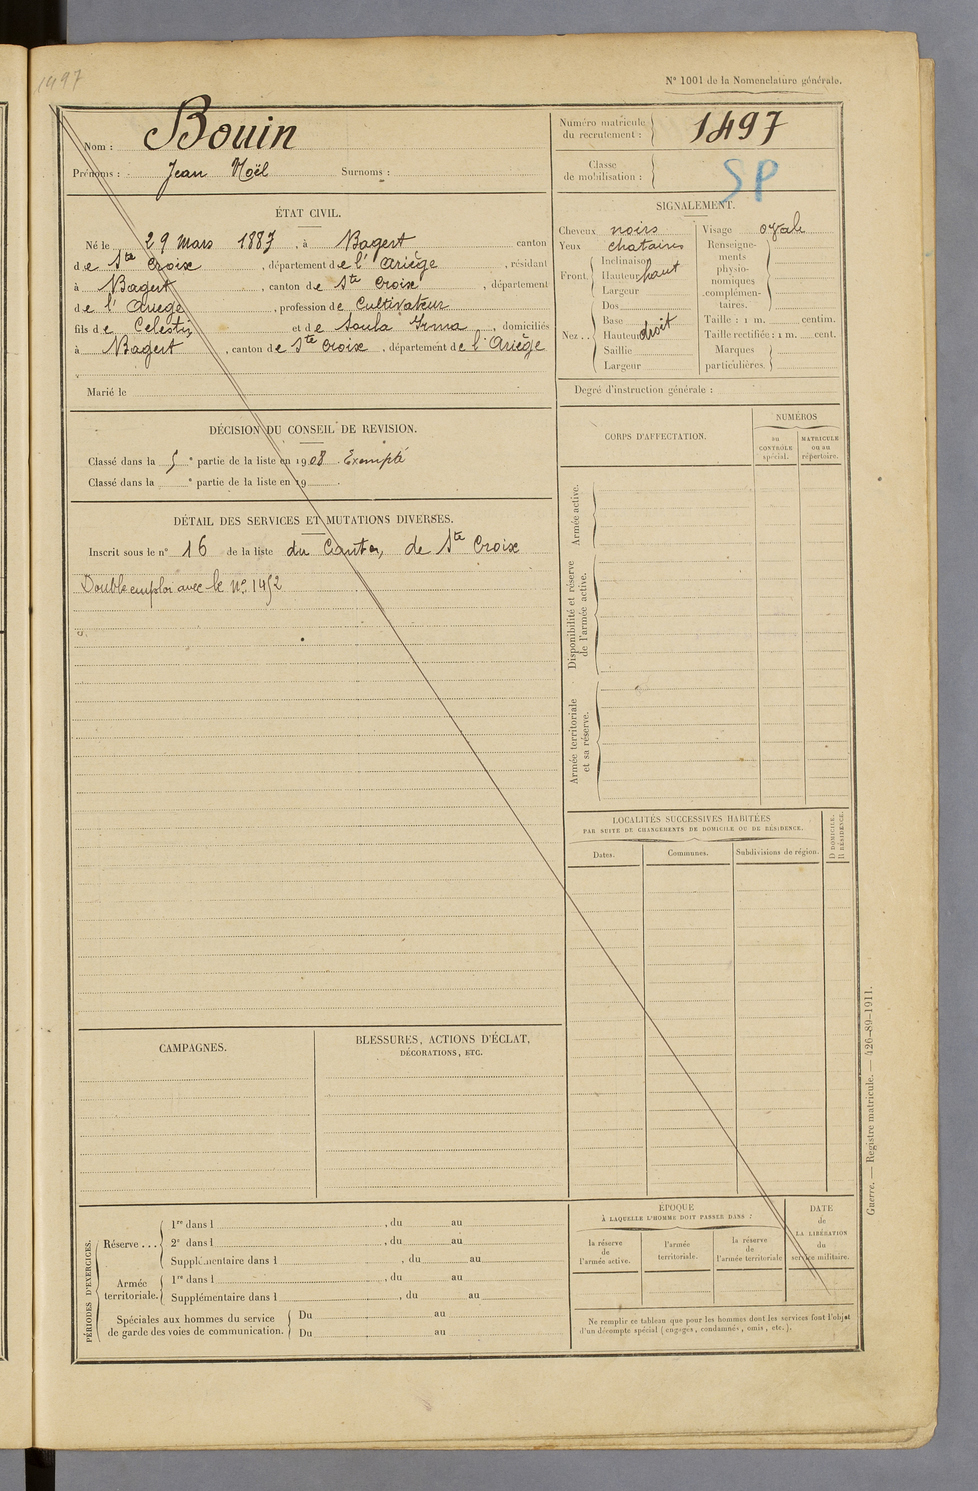 1497
N° 1001 de la Nomenclature générale.
Nom : Bouin
Prénoms : Jean Noël Surnoms :
Numéro matricule du recrutement : 1497
Classe de mobilisation : SP
ÉTAT CIVIL.
Né le 29 Mars 1887, à Bagert canton
de Ste Croix, département de l'Ariège, résidant
à Bagert, canton de Ste Croix, département
de l'Ariège, profession de Cultivateur
fils de Celestin et de Soula Irma, domiciliés
à Bagert, canton de Ste Croix, département de l'Ariège
Marié le
SIGNALEMENT.
Cheveux noirs
Yeux chatains
Front. Inclinaison
Hauteur haut
Largeur
Nez.. Dos
Base
Hauteur droit
Saillie
Largeur
Visage ovale
Renseignements physionomiques complémentaires.
Taille : 1 m. centim.
Taille rectifiée : 1 m. cent.
Marques particulières.
Degré d'instruction générale :
DÉCISION DU CONSEIL DE REVISION.
Classé dans la 5e partie de la liste en 1908. Exempté
Classé dans la e partie de la liste en 19 .
DÉTAIL DES SERVICES ET MUTATIONS DIVERSES.
Inscrit sous le n° 16 de la liste du Canton de Ste Croix
Double emploi avec le No 1452
CORPS D'AFFECTATION.
NUMÉROS
au CONTRÔLE spécial.
MATRICULE ou au répertoire.
Armée active.
Disponibilité et réserve de l'armée active.
Armée territoriale et sa réserve.
LOCALITÉS SUCCESSIVES HABITÉES
PAR SUITE DE CHANGEMENTS DE DOMICILE OU DE RÉSIDENCE.
Dates.
Communes.
Subdivisions de région.
D DOMICILE.
R RÉSIDENCE.
CAMPAGNES.
BLESSURES, ACTIONS D'ÉCLAT,
DÉCORATIONS, ETC.
PÉRIODES D'EXERCICES.
Réserve... 1re dans l , du au
2e dans l , du au
Supplémentaire dans l , du au
Armée territoriale. 1re dans l , du au
Supplémentaire dans l , du au
Spéciales aux hommes du service de garde des voies de communication. Du au
Du au
ÉPOQUE
À LAQUELLE L'HOMME DOIT PASSER DANS :
la réserve de l'armée active.
l'armée territoriale.
la réserve de l'armée territoriale
DATE de LA LIBÉRATION du service militaire.
Ne remplir ce tableau que pour les hommes dont les services font l'objet
d'un décompte spécial (engagés, condamnés, omis, etc.).
Guerre. — Registre matricule. — 426-89-1911.